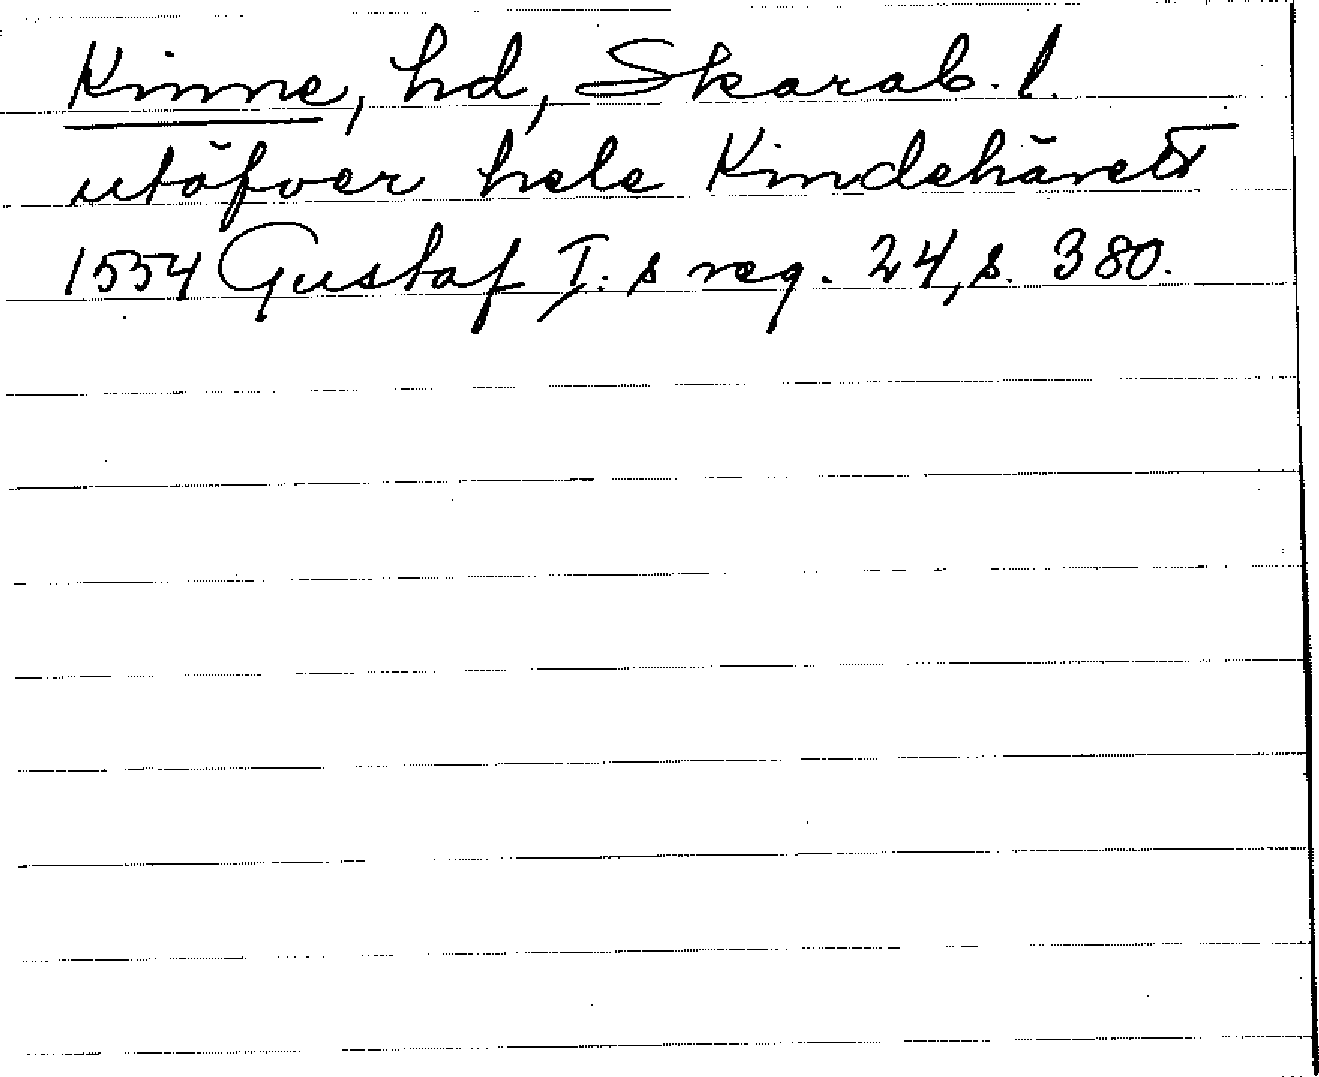 Kinne, hd, Skarab. l.
utöfver hele Kindehärett
1554 Gustaf I:s reg. 24, s. 380.